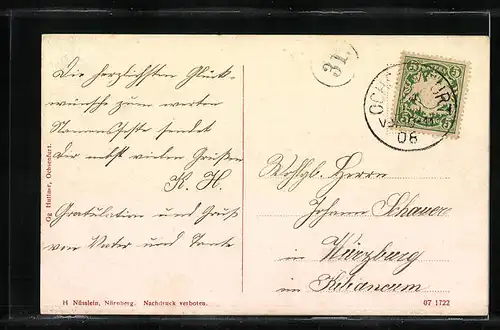 Die herzlichsten Glück-
wünsche zum werten
Namensfeste sendet
Dir nebst vielen Grüßen
K. H.
Gratulation und Gruß
von Vater und Tante
Gg Huttner, Ochsenfurt.
31.
5 5
OCHSENFURT
06
Wohlgb. Herrn
Johann Schauer
in Würzburg
im Kilianeum
H Nüsslein, Nürnberg. Nachdruck verboten.
07 1722